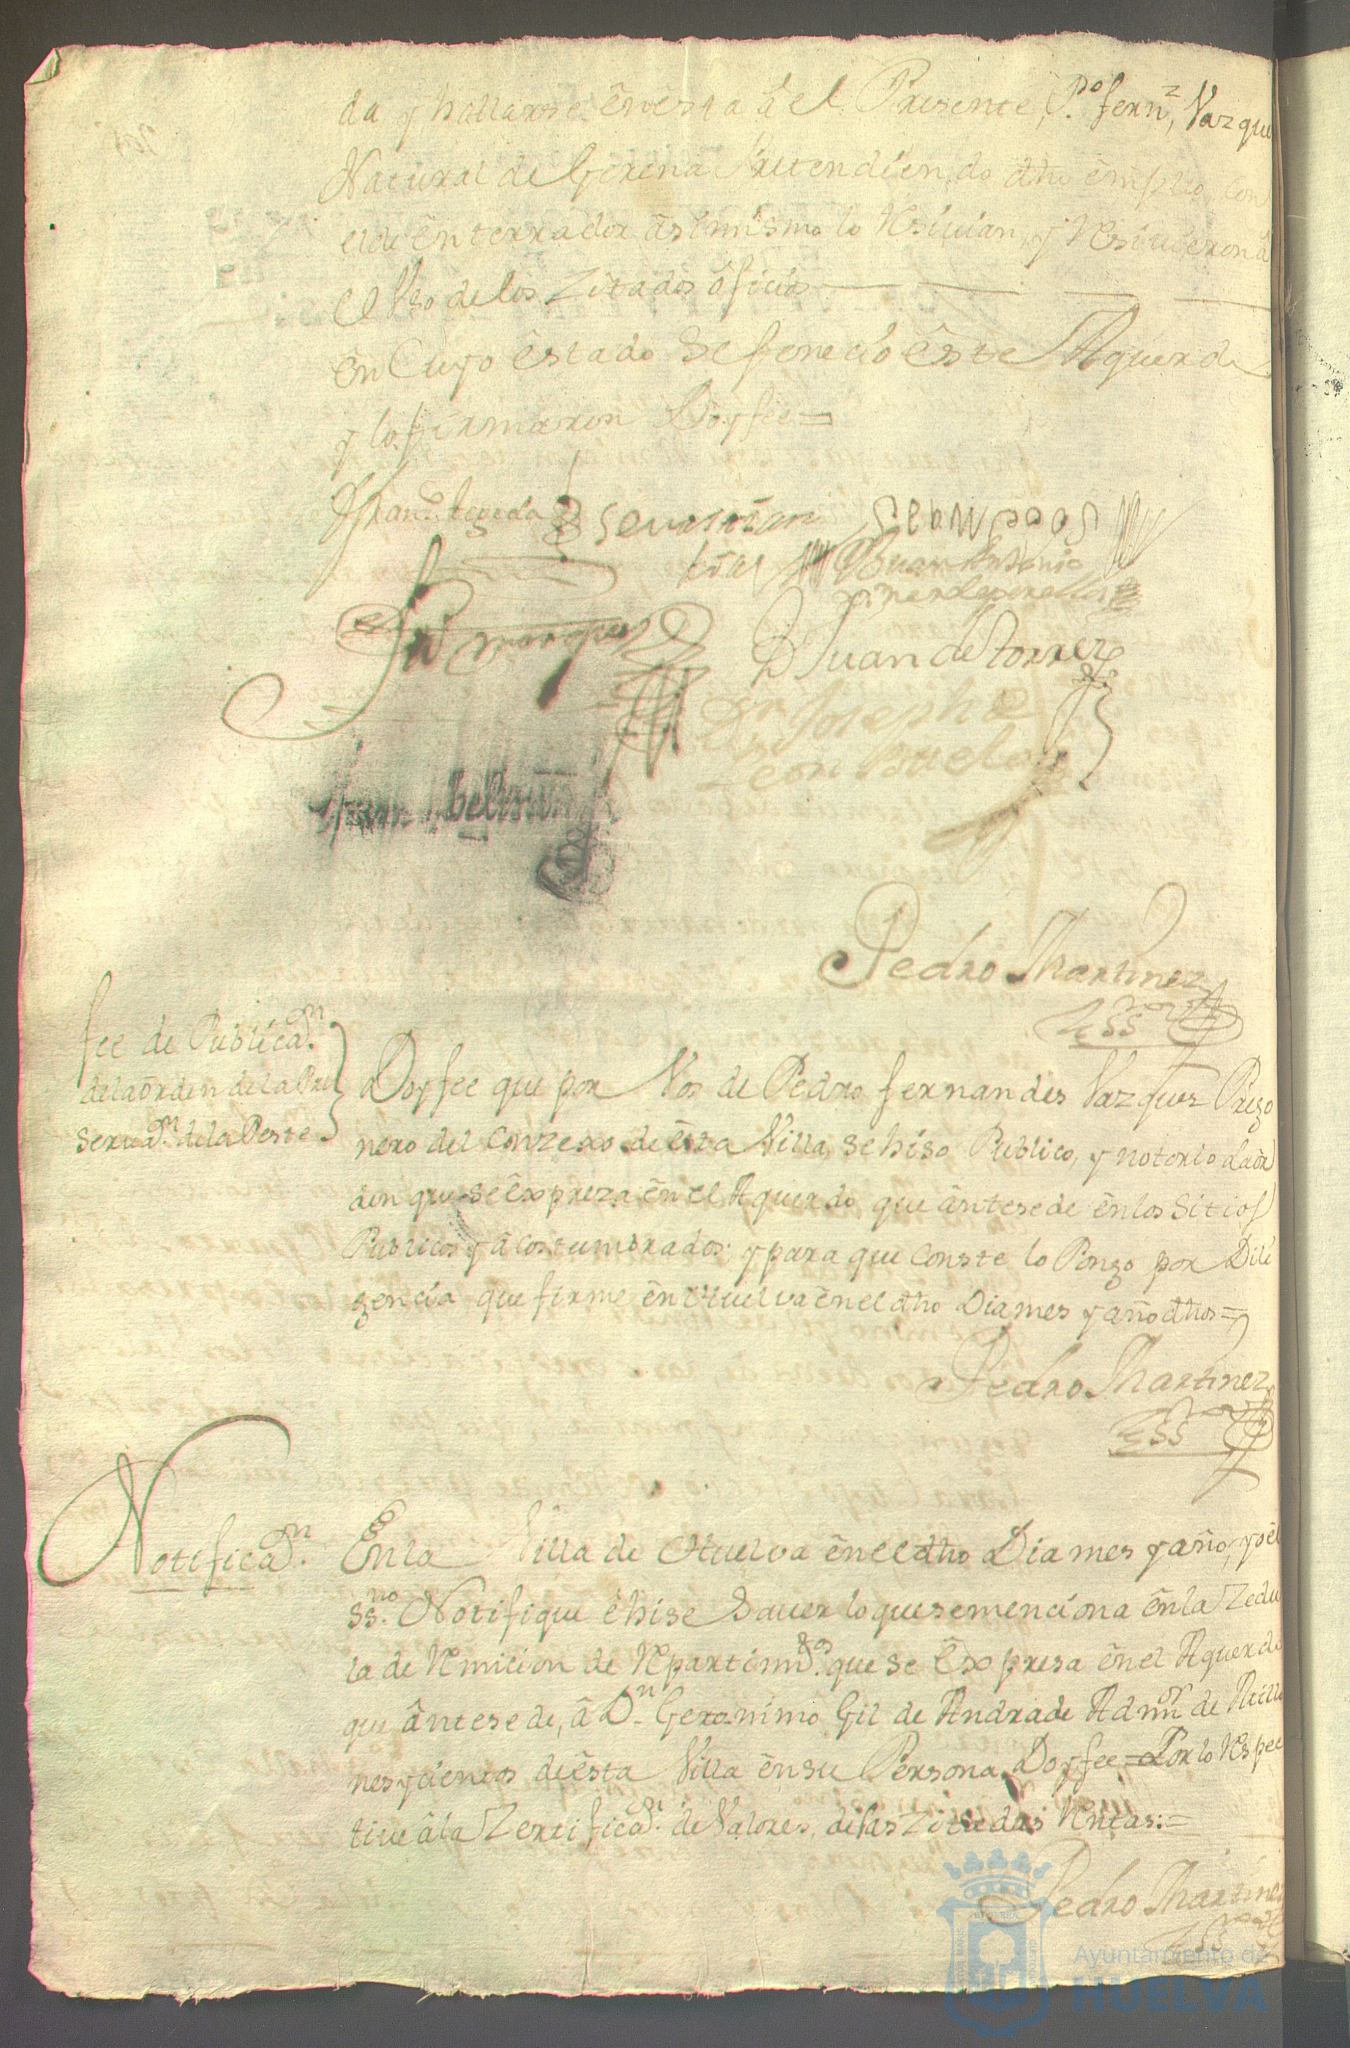 da y hallarse en esta a el Presente, P.º fern.z Vazque
Natural de Gerena Pretendiendo dho êmpleo, con
el de ênterrador âsimismo lo Resiuian, y Resiuieron a
el Vso de los Zitados ôficios
ên Cuyo êstado Se feneció êste Aquerdo
y lo firmaron Doyfee=
Fran.co Zepeda Seuastian
Juan Antonio
Jph marques
D Juan de torrez
Dn Joseph de
Leon
fran.co beltran
Pedro Martinez
ss.no
fee de Publica.on
de la ôrden de la Pre
serua.on de la Peste
Doyfee que por Vos de Pedro fernandes Vazquez Prego
nero del Conzexo de êsta Villa, se hiso Publico, y notorio la ôr
den que se êxpreza ên el Aquerdo que ântesede ên los Sitios
Publicos y âcostumbrados: y para que Conste lo Pongo por Dili
gencia que firme ên Huelva ên el dho Dia mes y año dhos=
Pedro Martinez
ss.no
Notifica.on
En la Villa de Huelva ên el dho Dia mes y año, yo êl
ss.no Notifique ê hise Sauer lo que se menciona ên la Zedu
la de Remicion de Repartim.tos que se Expresa ên el Aquerdo
que ântesede, â D.n Geronimo Gil de Andrade Adm.or de Millo
nes y cientos de êsta Villa ên su Persona Doyfee = Por lo Respec
tiue â la Zertifica.on de Valores, de las Zitadas Rentas:=
Pedro Martinez
ss.no
Ayuntamiento de
HUELVA